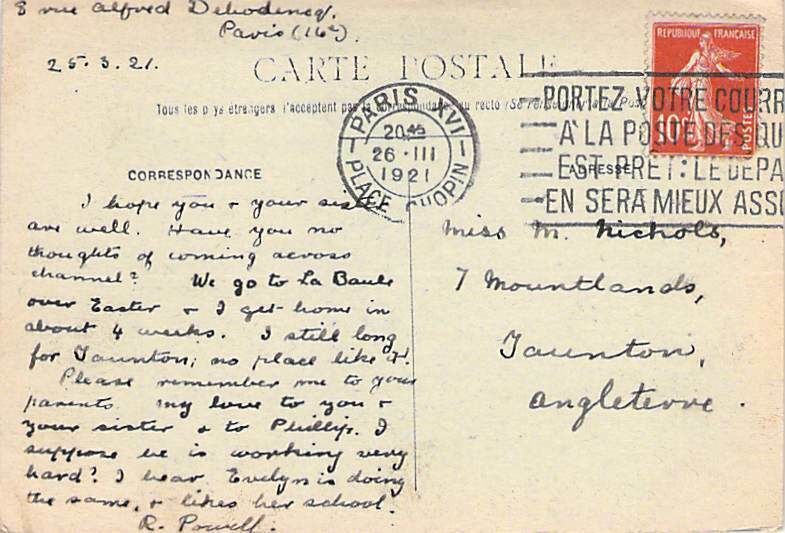 8 rue Alfred Dehodencq.
Paris (16e)
25.3.21.
CARTE POSTALE
Tous les pays étrangers n'acceptent pas la correspondance au recto (Se renseigner à la Poste)
REPUBLIQUE FRANÇAISE
10c
POSTES
PARIS XVI
20 45
26 · III
1921
PLACE CHOPIN
PORTEZ VOTRE COURR
A LA POSTE DES QU
EST PRET: LE DEPA
EN SERA MIEUX ASSU
CORRESPONDANCE
ADRESSE
I hope you & your sister
are well. Have you no
thoughts of coming across
channel? We go to La Baule
over Easter & I get home in
about 4 weeks. I still long
for Taunton; no place like it.
Please remember me to your
parents. My love to you &
your sister & to Phillip. I
suppose he is working very
hard? I hear Evelyn is doing
the same, & likes her school.
R. Powell.
Miss M. Nichols,
7 Mountlands,
Taunton,
Angleterre.